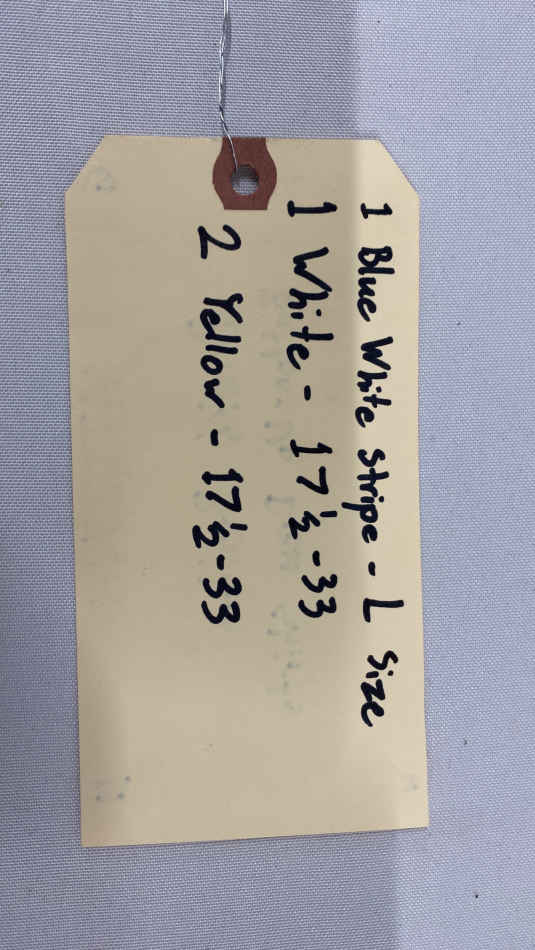 1 Blue White stripe - L Size
1 White - 17 ½ - 33
2 Yellow - 17 ½ - 33